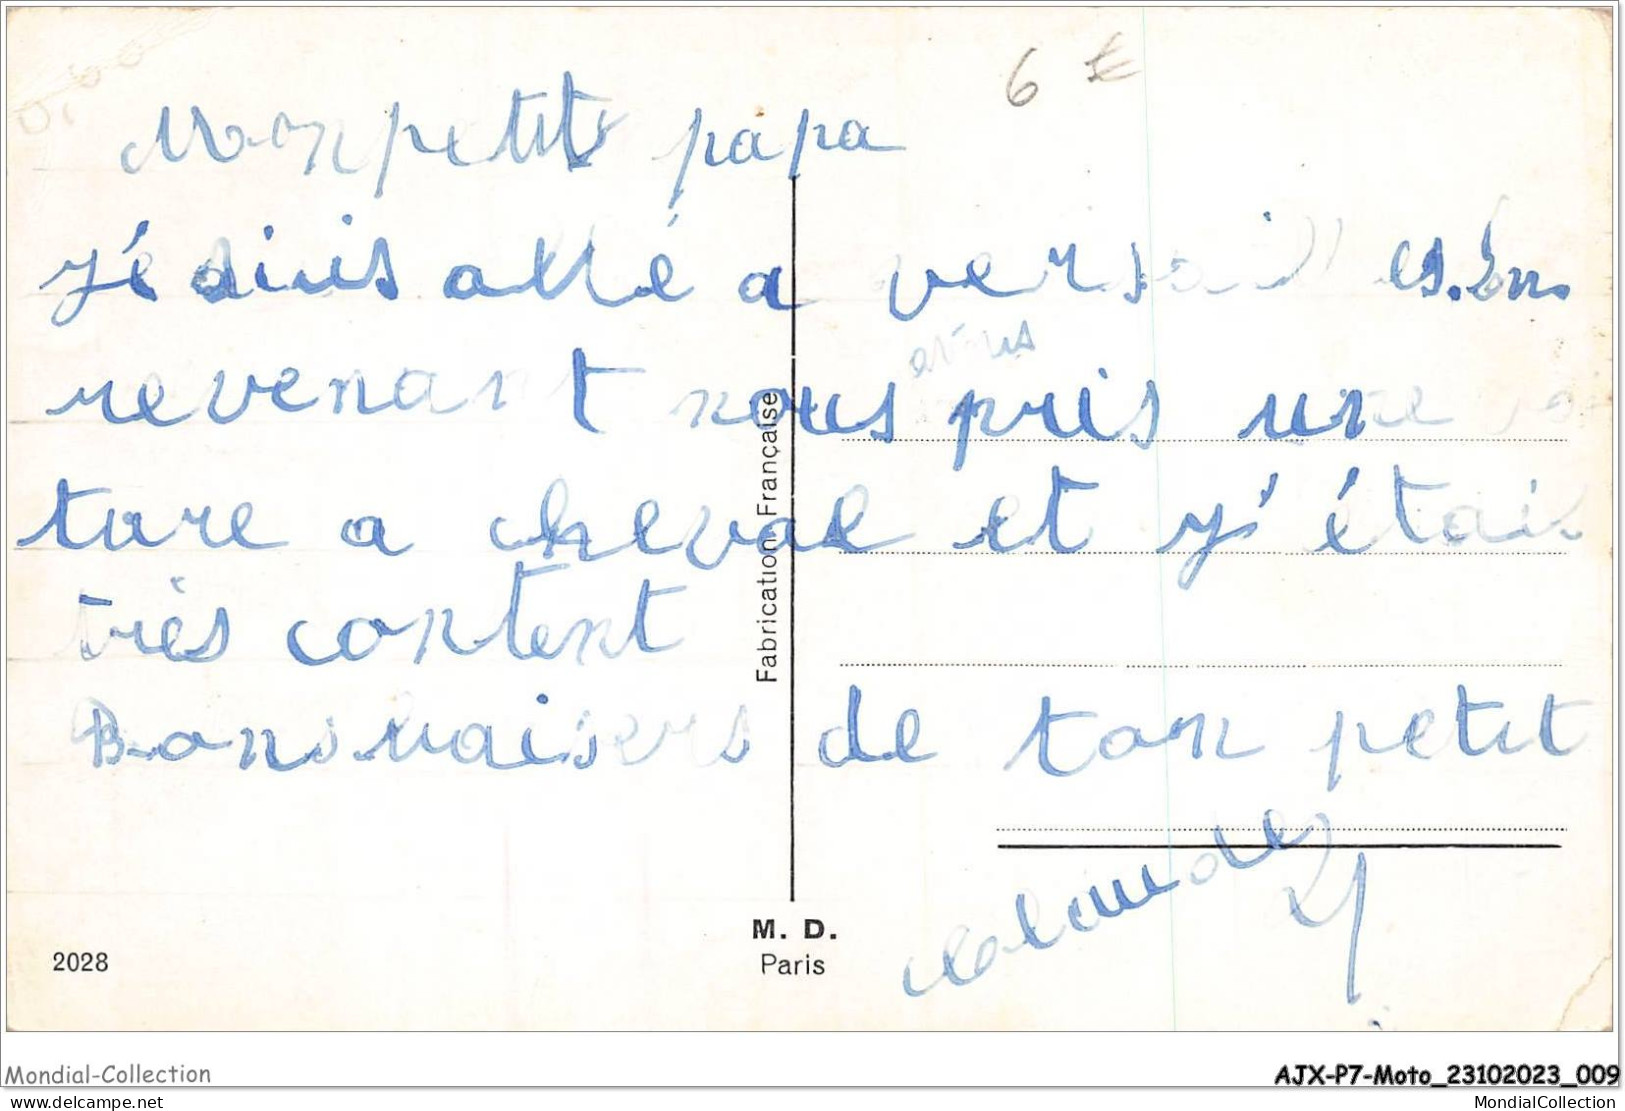 6 €
Mon petit papa
je suis allé a versailles. En
avons
revenant nous pris une voi
ture a cheval et j'étais
très content
Bons baisers de ton petit
claude
Fabrication Française
M. D.
Paris
2028
Mondial-Collection
AJX-P7-Moto_23102023_009
delcampe.net
MondialCollection